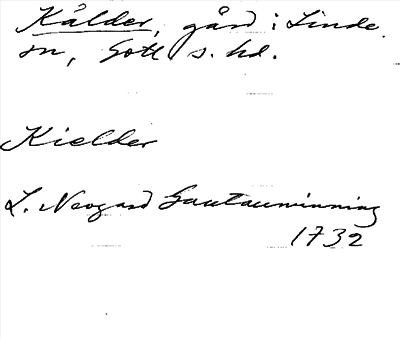 Kålder, gård i Linde
sn, Gotl s. hd.
Kielder
L. Neogard Gautauminning
1732